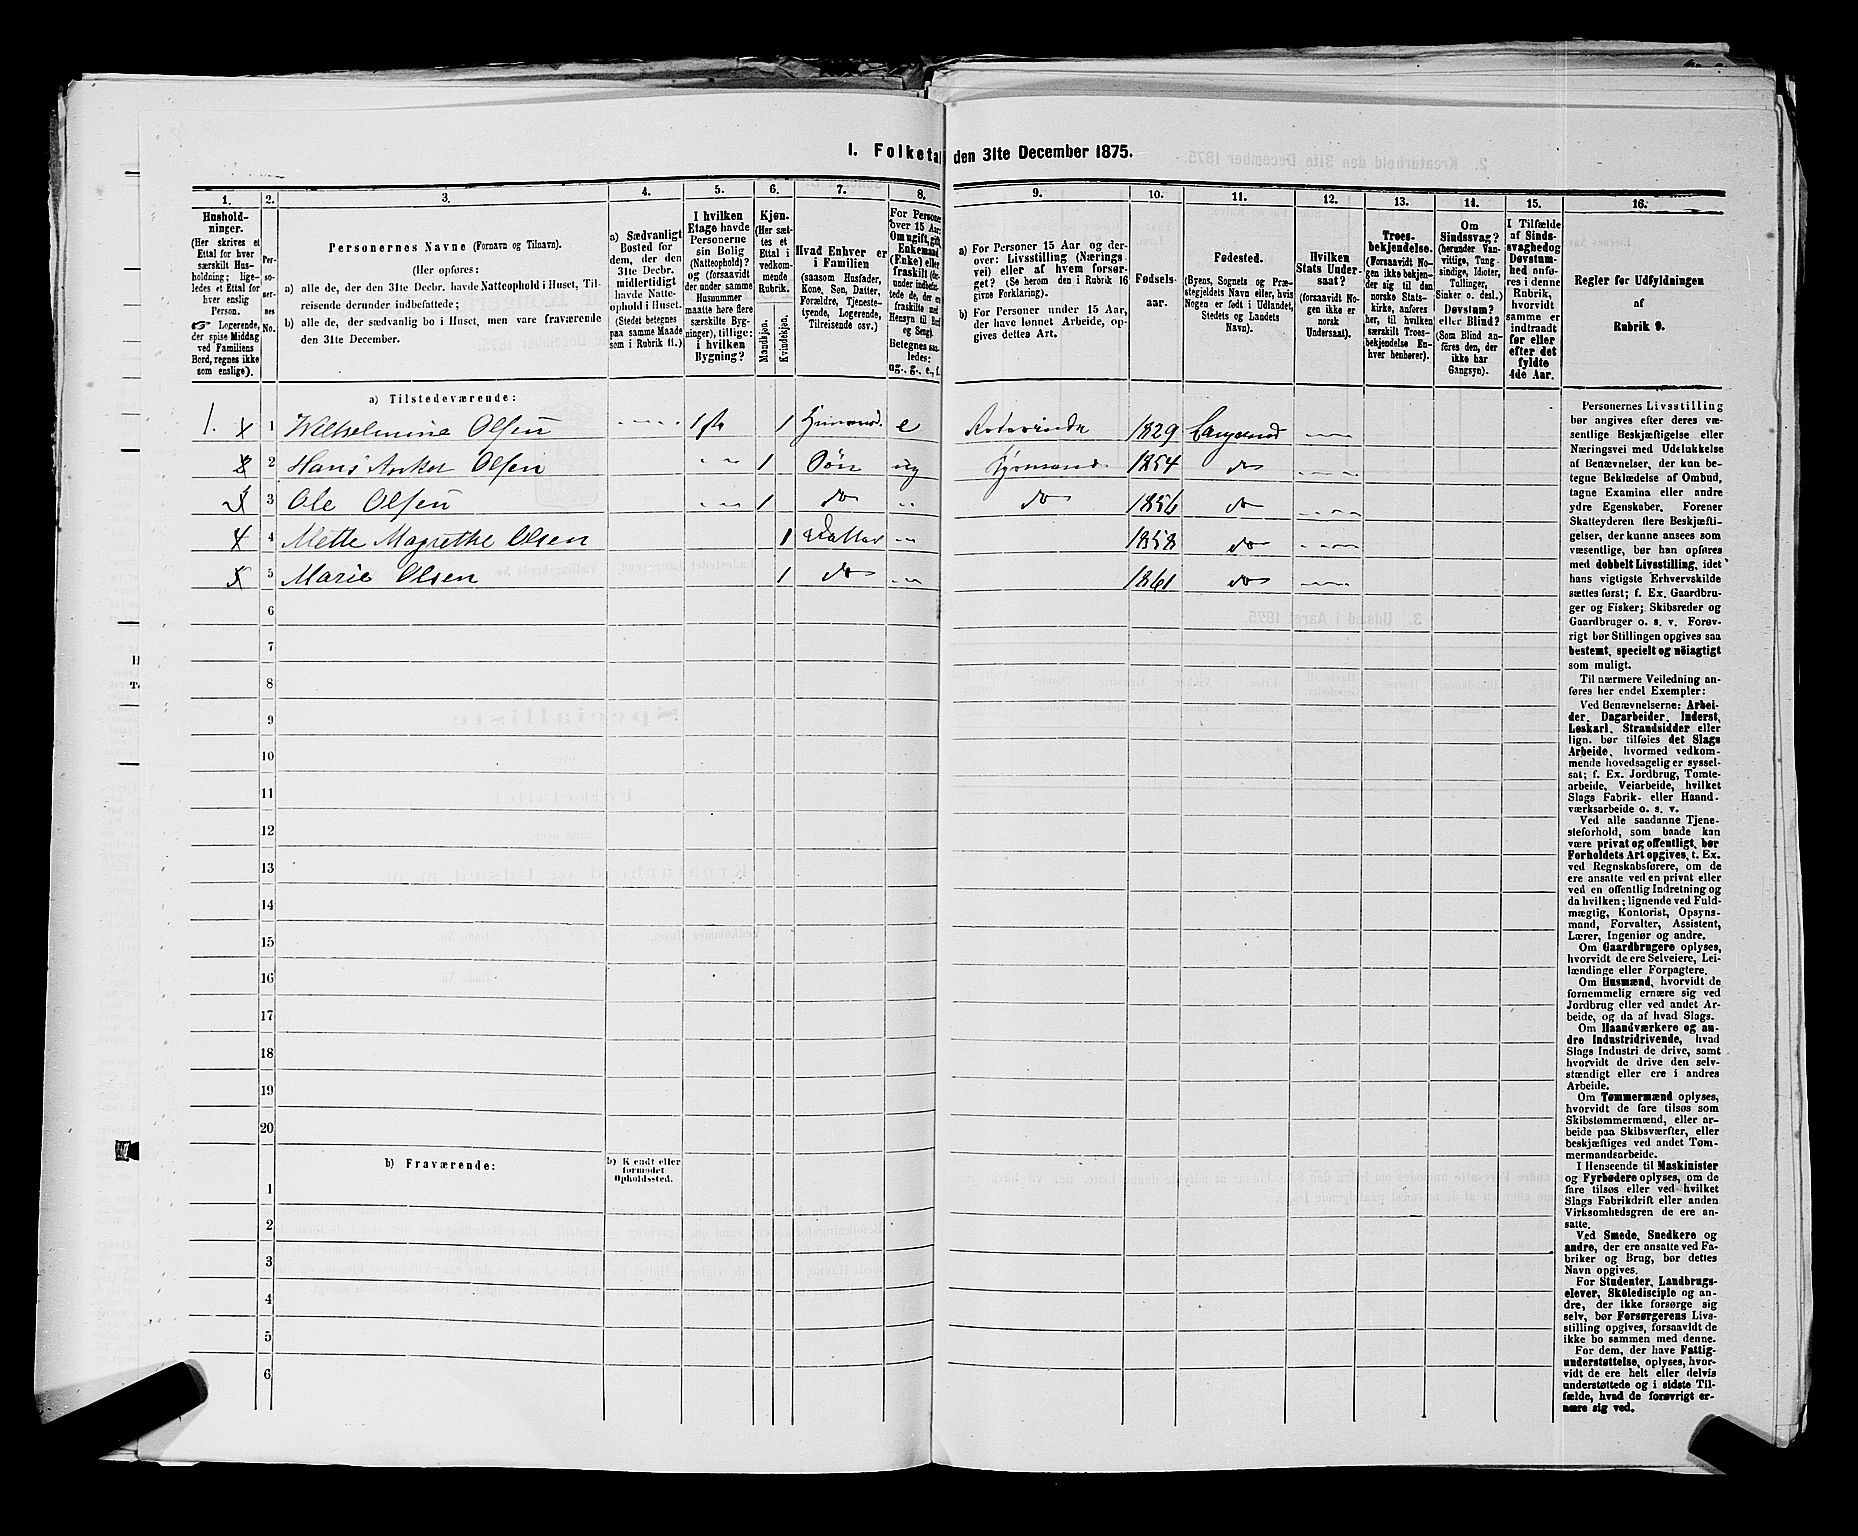 1. Folketal den 31te December 1875.
1. 2. 3. 4. 5. 6. 7. 8. 9. 10. 11. 12. 13. 14. 15. 16.
Husholdninger.
(Her skrives et
Ettal for hver
særskilt Husholdning;
ligeledes et Ettal for
hver enslig
Person.
☞ Logerende,
der spise Middag
ved Familiens
Bord, regnes ikke
som enslige).
Personernes No.
Personernes Navne (Fornavn og Tilnavn).
(Her opføres:
a) alle de, der den 31te Decbr. havde Natteophold i Huset, Tilreisende derunder indbefattede;
b) alle de, der sædvanlig bo i Huset, men vare fraværende
den 31te December.
a) Sædvanligt
Bosted for
dem, der den
31te Decbr.
midlertidigt
havde Natteophold i Huset.
(Stedet betegnes
paa samme Maade
som i Rubrik 11.)
I hvilken
Etage havde
Personerne
sin Bolig
(Natteophold)?
og (forsaavidt
der under samme
Husnummer
maatte høre flere
særskilte Bygninger), tillige:
i hvilken
Bygning?
Kjøn.
(Her sættes et
Ettal i
vedkommende
Rubrik.
Mandkjøn.
Kvindekjøn.
Hvad Enhver er
i Familien
(saasom Husfader,
Kone, Søn, Datter,
Forældre, Tjenestetyende, Logerende,
Tilreisende osv.)
a) For Personer 15 Aar og derover: Livsstilling (Næringsvei) eller af hvem forsørget? (Se herom den i Rubrik 16
givne Forklaring).
b) For Personer under 15 Aar,
der have lønnet Arbeide, opgives dettes Art.
Fødselsaar.
Fødested.
(Byens, Sognets og Præstegjeldets Navn eller, hvis
Nogen er født i Udlandet,
Stedets og Landets
Navn).
Hvilken
Stats Undersaat?
(forsaavidt Nogen ikke er
norsk
Undersaat).
Troesbekjendelse.
(Forsaavidt Nogen ikke bekjender sig til den
norske Statskirke, anføres
her, til hvilken
særskilt Troesbekjendelse Enhver henhører).
Om
Sindssvag?
(herunder Vanvittige, Tungsindige, Idioter,
Tullinger,
Sinker o. desl.)
Døvstum?
eller Blind?
(Som Blind anføres den, der
ikke har
Gangsyn).
I Tilfælde
af Sindssvaghed og
Døvstumhed anføres i denne
Rubrik,
hvorvidt
samme er
indtraadt
før eller
efter det
fyldte
4de Aar.
Regler for Udfyldningen
af
Rubrik 9.
a) Tilstedeværende:
1. 1 Wilhelmine Olsen 1 1 e 1829 Langesund
2 Hans Anker Olsen 1 Søn ug 1854 do
3 Ole Olsen 1 do do 1856 do
4 Mette Magrethe Olsen 1 Datter 1858 do
5 Marie Olsen 1 do 1861 do
6
7
8
9
10
11
12
13
14
15
16
17
18
19
20
b) Fraværende:
b) Kjendt eller
formodet
Opholdssted.
1
2
3
4
5
6
Personernes Livsstilling
bør angives efter deres væsentlige Beskjæftigelse eller
Næringsvei med Udelukkelse
af Benævnelser, der kun betegne Beklædelse af Ombud,
tagne Examina eller andre
ydre Egenskaber. Forener
Skatteyderen flere Beskjæftigelser, der kunne ansees som
væsentlige, bør han opføres
med dobbelt Livsstilling, idet
hans vigtigste Erhvervskilde
sættes først; f. Ex. Gaardbruger og Fisker; Skibsreder og
Gaardbruger o. s. v. Forøvrigt bør Stillingen opgives saa
bestemt, specielt og nøiagtigt
som muligt.
Til nærmere Veiledning anføres her endel Exempler:
Ved Benævnelserne: Arbeider, Dagarbeider, Inderst,
Løskarl, Strandsidder eller
lign. bør tilføies det Slags
Arbeide, hvormed vedkommende hovedsagelig er sysselsat; f. Ex. Jordbrug, Tomtearbeide, Veiarbeide, hvilket
Slags Fabrik- eller Haandværksarbeide o. s. v.
Ved alle saadanne Tjenesteforhold, som baade kan
være privat og offentligt, bør
Forholdets Art opgives, t. Ex.
ved Regnskabsførere, om de
ere ansatte ved en privat eller
ved en offentlig Indretning og
da hvilken; lignende ved Fuldmægtig, Kontorist, Opsynsmand, Forvalter, Assistent,
Lærer, Ingeniør og andre.
Om Gaardbrugere oplyses,
hvorvidt de ere Selveiere, Leilændinge eller Forpagtere.
Om Husmænd, hvorvidt de
fornemmelig ernære sig ved
Jordbrug eller ved andet Arbeide, og da af hvad Slags.
Om Haandværkere og andre Industridrivende, hvad
Slags Industri de drive, samt
hvorvidt de drive den selvstændigt eller ere i andres
Arbeide.
Om Tømmermænd oplyses,
hvorvidt de fare tilsøs som
Skibstømmermænd, eller arbeide paa Skibsværfter, eller
beskjæftiges ved andet Tømmermandsarbeide.
I Henseende til Maskinister
og Fyrbødere oplyses, om de
fare tilsøs eller ved hvilket
Slags Fabrikdrift eller anden
Virksomhedsgren de ere ansatte.
Ved Smede, Snedkere og
andre, der ere ansatte ved Fabriker og Brug, bør dettes
Navn opgives.
For Studenter, Landbrugselever, Skoledisciple og andre, der ikke forsørge sig
selv, bør Forsørgerens Livsstilling opgives, forsaavidt de
ikke bo sammen med denne.
For dem, der have Fattigunderstøttelse, oplyses, hvorvidt de ere helt eller delvis
understøttede og i sidste Tilfælde, hvad de forøvrigt ernære sig ved.